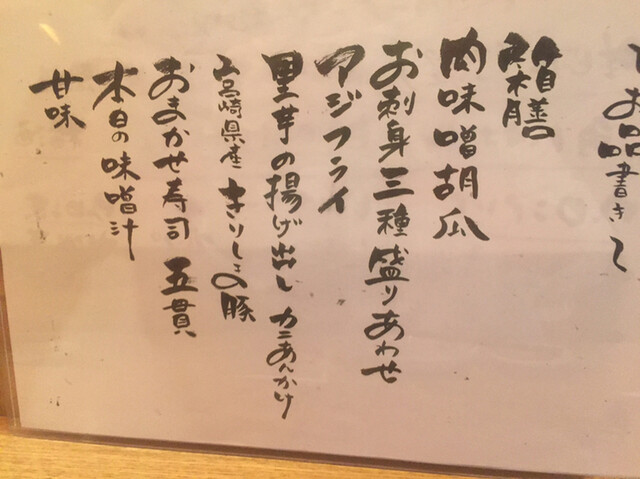 〜お品書き〜
箱膳
肉味噌胡瓜
お刺身三種盛りあわせ
アジフライ
里芋の揚げ出し カニあんかけ
宮崎県産 きりしまの豚
おまかせ寿司 五貫
本日の味噌汁
甘味